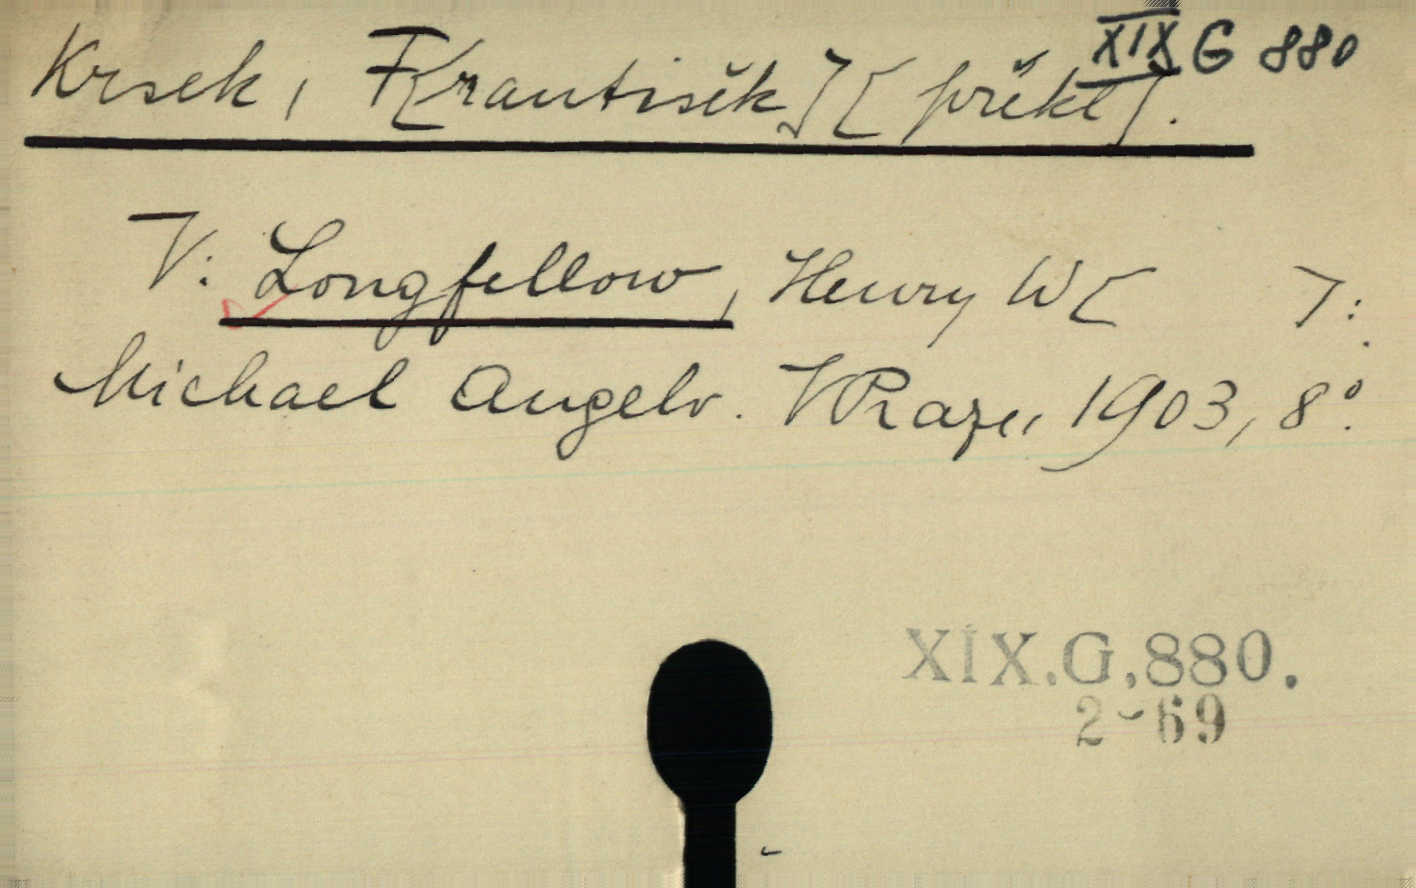 XIX G 880
Krsek, F[rantišek] [překl].
V: Longfellow, Henry W[ ]:
Michael Angelo. V Praze, 1903, 8°.
XIX.G.880.
2-69